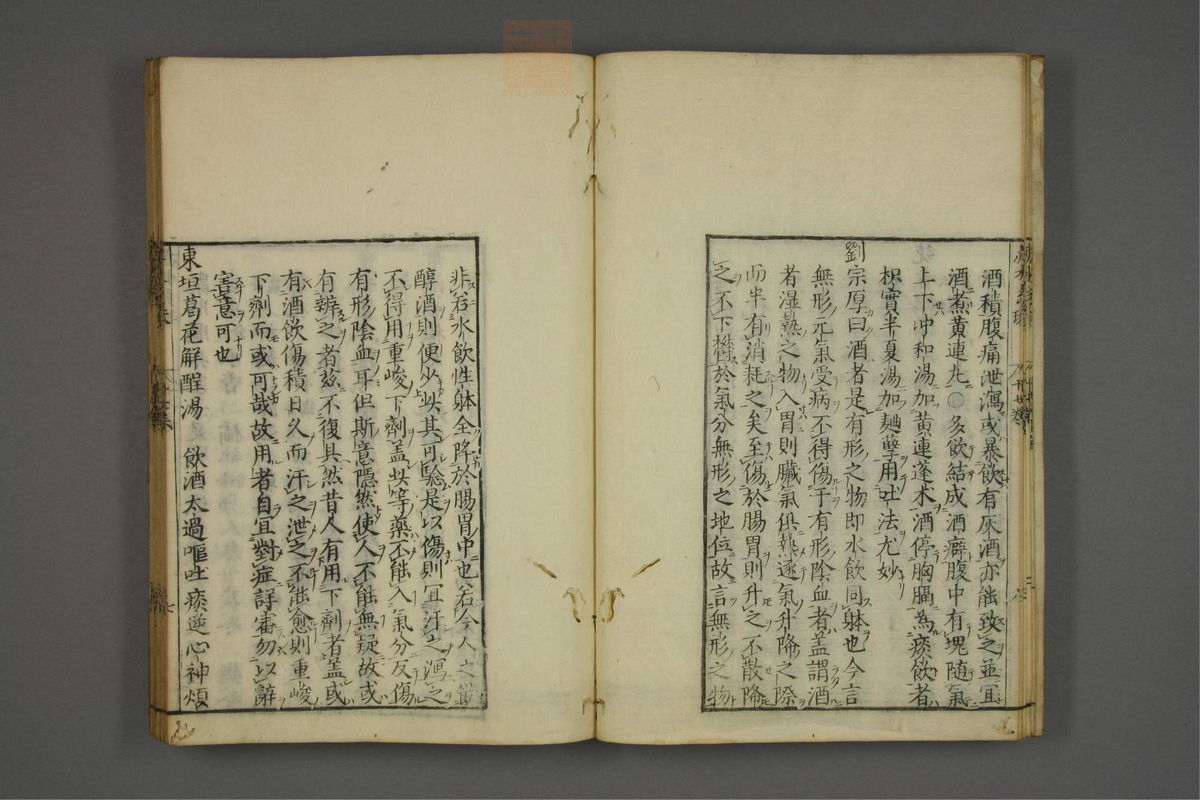 酒積腹痛泄瀉或暴飲有灰酒亦能致之並宜
酒煮黄連丸〇多飲結成酒癖腹中有塊随氣
上下冲和湯加黄連蓬术酒停胸膈為痰飲者
枳實半夏湯加麯蘖用吐法尤妙
劉宗厚曰酒者是有形之物即水飲同躰也今言
無形元氣受病不得傷于有形陰血者盖謂酒
者湿熱之物入胃則臟氣俱熱逐氣升降之際
而半有消耗之矣至傷於腸胃則升之不散降
之不下欝於氣分無形之地位故言無形之物
非若水飲性躰全降於腸胃中也若今人之飲
醇酒則便少此其可驗是以傷則宜汗之瀉之
不得用重峻下劑盖此等藥不能入氣分反傷
有形陰血耳但斯意隱然使人不能無疑故或
有辨之者兹不復具然昔人有用下劑者盖或
有酒飲傷積日久而汗之泄之不能愈則重峻
下劑而或可哉故用者自宜對症詳審勿以辭
害意可也
東垣葛花解酲湯 飲酒太過嘔吐痰逆心神煩